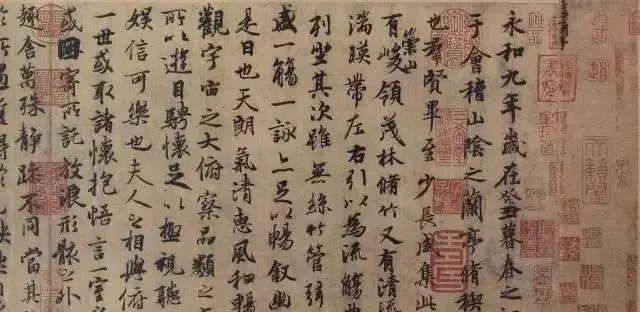 永和九年歲在癸丑暮春之初
于會稽山陰之蘭亭脩稧
也羣賢畢至少長咸集此
崇山
有峻領茂林脩竹又有清流
湍暎帶左右引以為流觴曲
列坐其次雖無絲竹管弦
盛一觴一詠亦足以暢敘幽
是日也天朗氣清惠風和暢
觀宇宙之大俯察品類之
所以遊目騁懷足以極視聽
娛信可樂也夫人之相與俯
一世或取諸懷抱悟言一室
或因寄所託放浪形骸之外
趣舍萬殊静躁不同當其